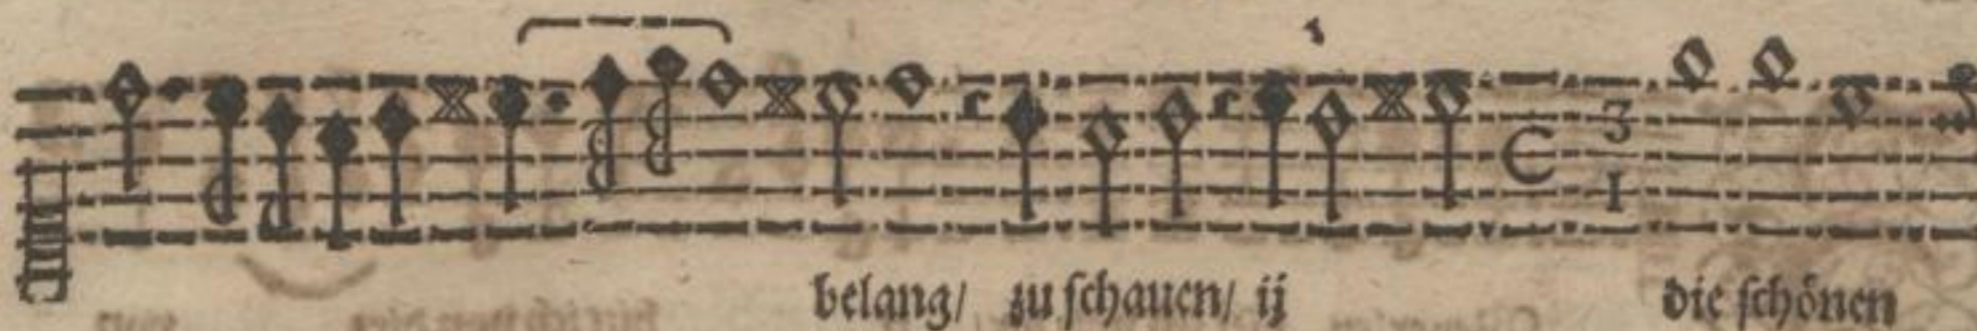 3
1
belang/ zu schauen/ ij die schönen